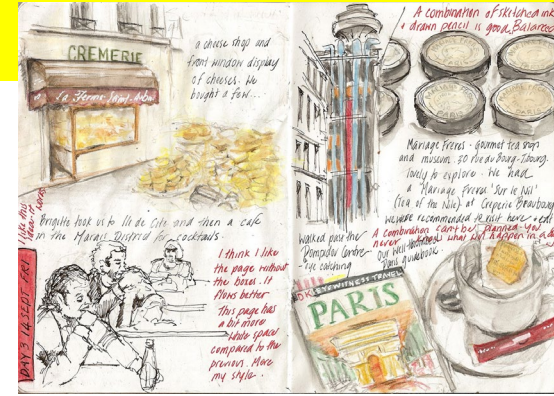 CREMERIE
La Ferme Saint
a cheese shop and
front window display
of cheeses. We
bought a few...
I like this
idea
Brigitte took us to Ile de Cite and then a cafe
in the Marais District for cocktails.
DAY 3 14 SEPT. FRI
I think I like
the page without
the boxes. It
flows better
This page has
a bit more
white space
compared to the
previous. More
my style.
A combination of sketched ink
+ drawn pencil is good. Balanced
Mariage Freres - Gourmet tea shop
and museum. 30 rue du Bourg-Tibourg.
lovely to explore. We had
a 'Mariage Freres' 'Sur le Nil'
(Tea of the Nile) at Creperie Beaubourg
we were recommended to visit here
A combination can't be planned - you
never know what will happen in a day
walked past the
Pompidou Centre -
eye catching
our well-
Paris guidebook
DK EYEWITNESS TRAVEL
PARIS